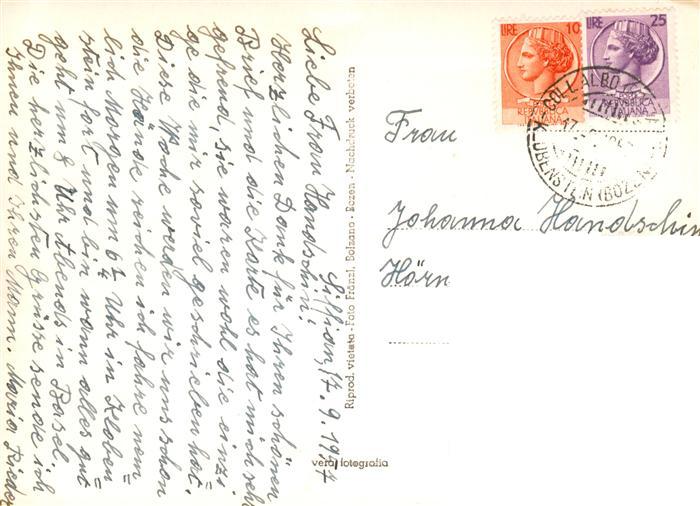 Lillian, 17. 9. 1957
Liebe Frau Handschin!
Herzlichen Dank für Ihren schönen
Brief und die Karte es hat mich sehr
gefreud, sie waren wohl die einzi=
ge die mir soviel geschrieben hat.
Diese Woche werden wir uns schon
die Hände reichen ich fahre nem=
lich Morgen um 6¼ Uhr in Kloben=
stein fort und bin wann alles gut
geht um 8 Uhr Abends in Basel.
Die herzlichsten Grüsse sende ich
Ihnen und Ihren Mann. Maria Rieder
Riprod. vietata - Foto Fränzl, Bolzano - Bozen - Nachdruck verboten
vera fotografia
LIRE 10
REPVBBLICA
ITALIANA
LIRE 25
REPVBBLICA
ITALIANA
COLLALBO
OBENSTEIN (BOZEN)
Frau
Johanna Handschin
Hörn